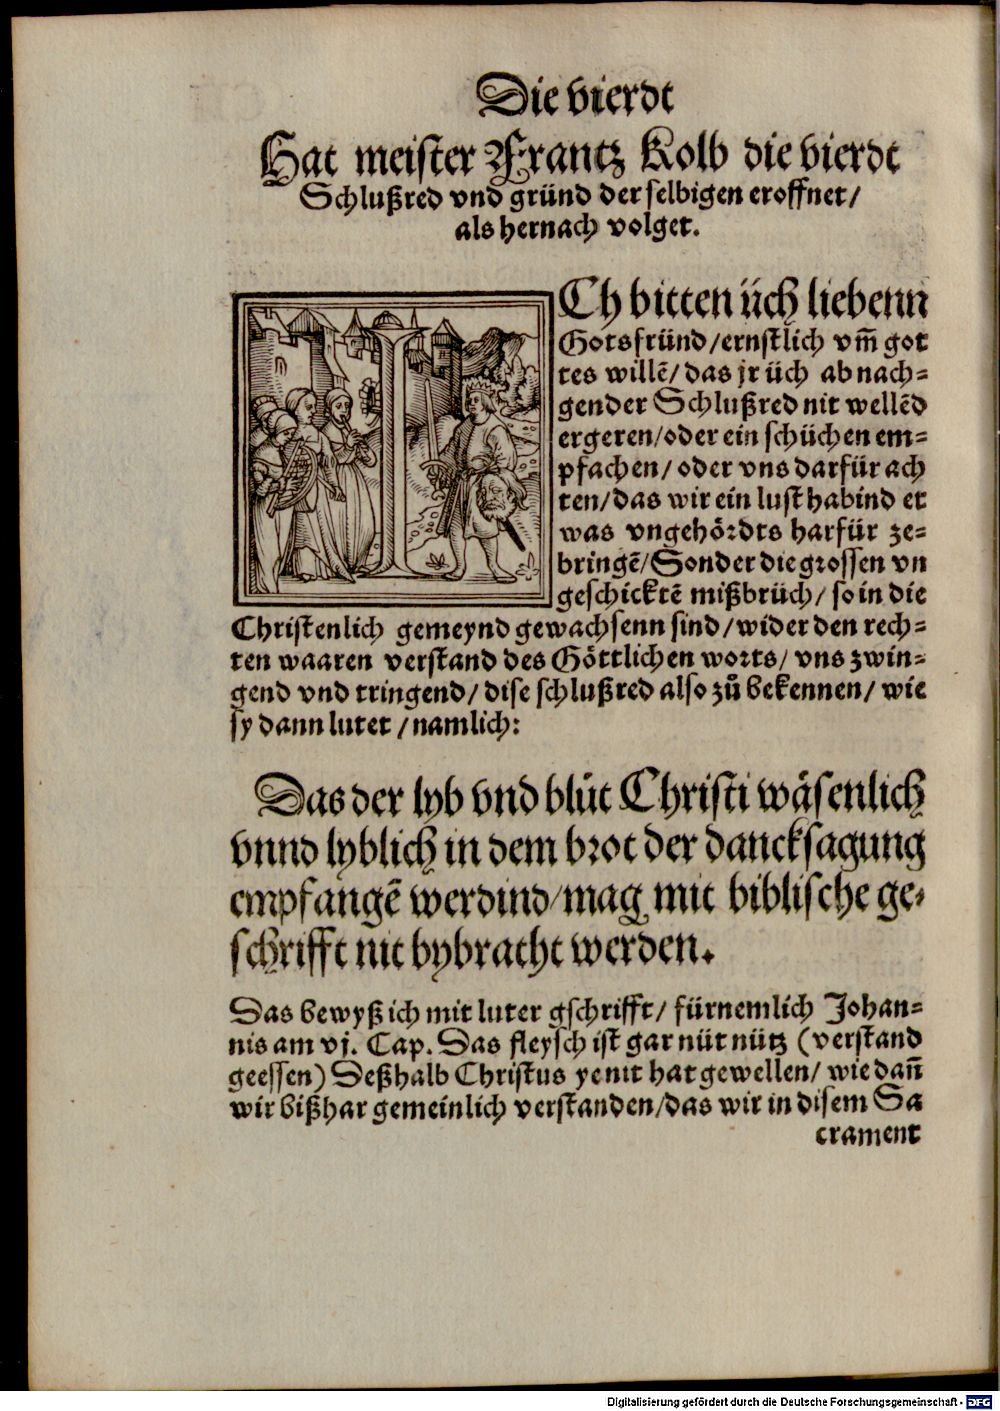 Die vierdt
Hat meister Frantz Kolb die vierdt
Schlußred vnd gründ der selbigen eroffnet/
als hernach volget.
ICh bitten üch liebenn
Gotsfründ/ernstlich vm̄ got
tes willē/das jr üch ab nach⸗
gender Schlußred nit wellēd
ergeren/oder ein schüchen em⸗
pfachen/oder vns darfür ach
ten/das wir ein lust habind et
was vngehördts harfür ze⸗
bringē/Sonder die grossen vn
geschicktē mißbrüch/so in die
Christenlich gemeynd gewachsenn sind/wider den rech⸗
ten waaren verstand des Göttlichen worts/vns zwin⸗
gend vnd tringend/dise schlußred also zů bekennen/wie
sy dann lutet/namlich:
Das der lyb vnd blůt Christi wäsenlich
vnnd lyblich in dem brot der dancksagung
empfangē werdind/mag mit biblische ge⸗
schrifft nit bybracht werden.
Das bewyß ich mit luter gschrifft/fürnemlich Johan⸗
nis am vj. Cap. Das fleysch ist gar nüt nütz (verstand
geessen) Deßhalb Christus ye nit hat gewellen/wie dañ
wir bißhar gemeinlich verstanden/das wir in disem Sa
crament
Digitalisierung gefördert durch die Deutsche Forschungsgemeinschaft - DFG